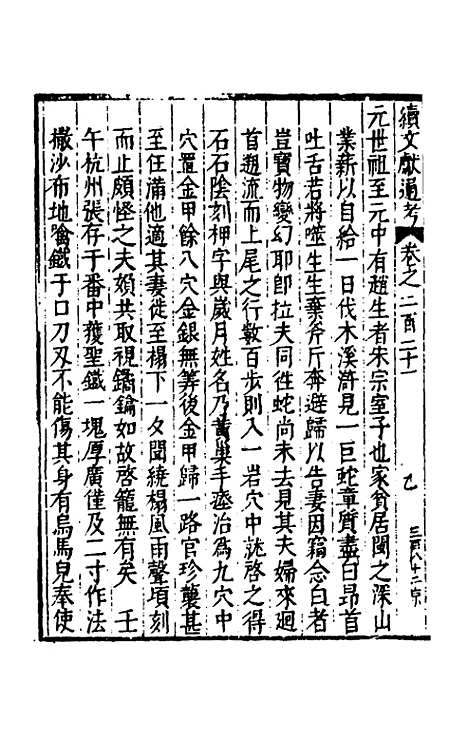 續文獻通考 卷之二百二十一 己 三百八十二 京
元世祖至元中有趙生者宋宗室子也家貧居閩之深山
業薪以自給一日伐木溪滸見一巨蛇章質盡白昂首
吐舌若將噬生生棄斧斤奔避歸以告妻因竊念白者
豈寳物變幻耶即拉夫同徃蛇尚未去見其夫婦來廻
首遡流而上尾之行數百步則入一岩穴中就啓之得
石石陰刻押字與歲月姓名乃黃巢手瘞治為九穴中
穴置金甲餘八穴金銀無筭後金甲歸一路官珍襲甚
至任滿他適其妻徙至榻下一夕聞繞榻風雨聲頃刻
而止頗怪之夫頰共取視鐍鑰如故啓籠無有矣 壬
午杭州張存于番中獲聖鐵一塊厚廣僅及二寸作法
撒沙布地噙鐵于口刀刃不能傷其身有烏馬兒奉使